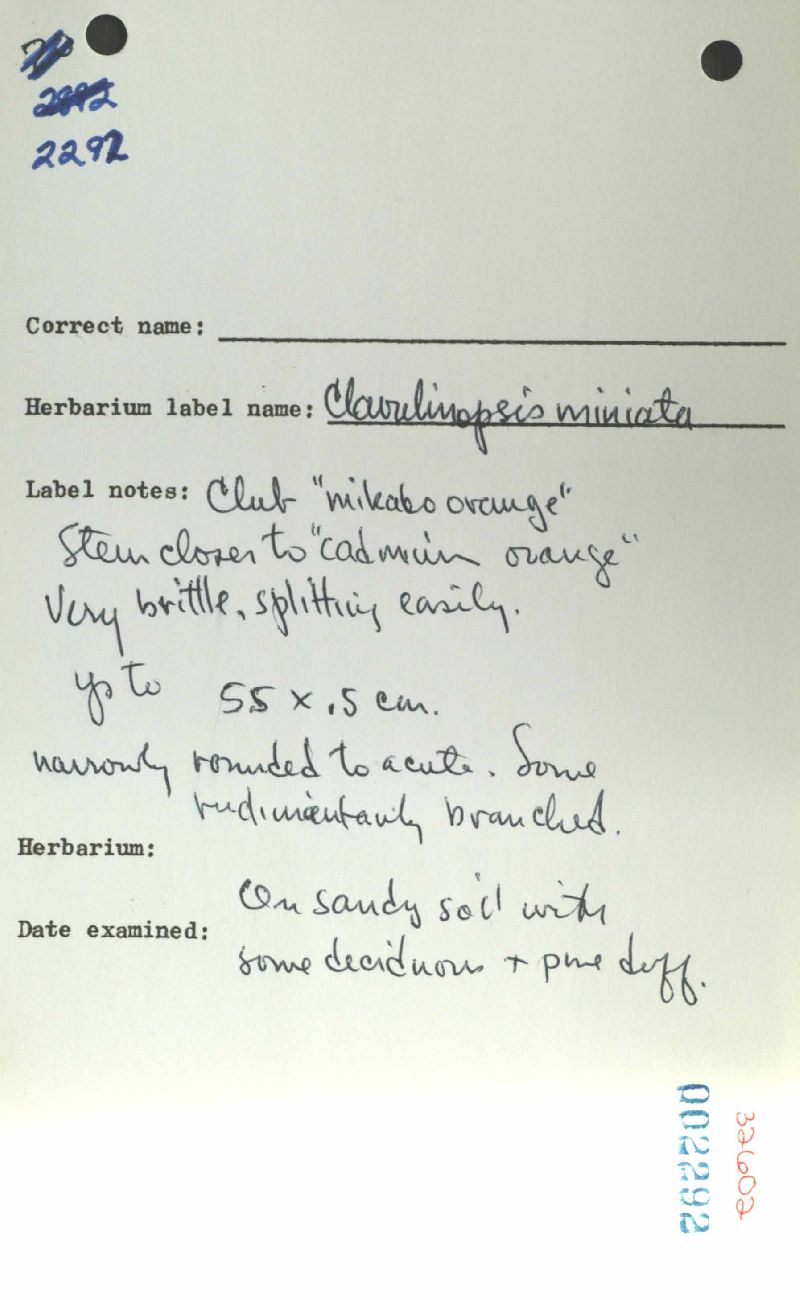 2292
2292
Correct name:
Herbarium label name: Clavulinopsis miniata
Label notes: Club "mikado orange"
Stem closer to "cadmium orange"
Very brittle, splitting easily.
up to 55 x .5 cm.
narrowly rounded to acute. Some
rudimentarily branched.
Herbarium:
On sandy soil with
Date examined:
some deciduous + pine duff.
002292
32602